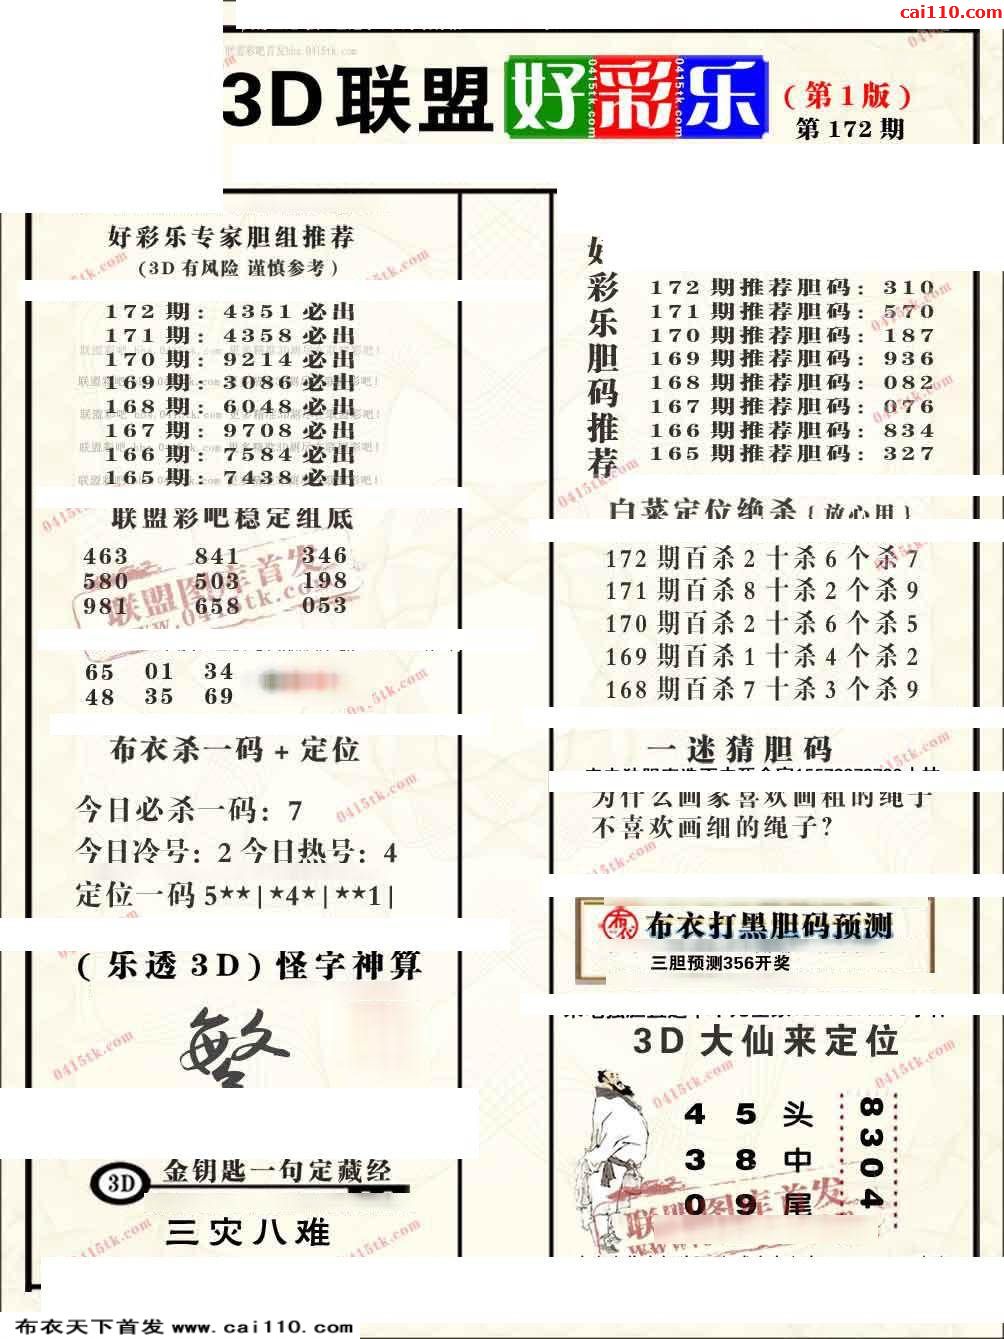 cai110.com
3D联盟 好彩乐 (第1版)
第172期
好彩乐专家胆组推荐
(3D有风险 谨慎参考)
172期: 4351必出
171期: 4358必出
170期: 9214必出
169期: 3086必出
168期: 6048必出
167期: 9708必出
166期: 7584必出
165期: 7438必出
联盟彩吧稳定组底
463 841 346
580 503 198
981 658 053
65 01 34
48 35 69
布衣杀一码+定位
今日必杀一码: 7
今日冷号: 2 今日热号: 4
定位一码 5**|*4*|**1|
(乐透3D)怪字神算
3D 金钥匙一句定藏经
三灾八难
好彩乐胆码推荐
172期推荐胆码: 310
171期推荐胆码: 570
170期推荐胆码: 187
169期推荐胆码: 936
168期推荐胆码: 082
167期推荐胆码: 076
166期推荐胆码: 834
165期推荐胆码: 327
白菜定位绝杀{放心用}
172期百杀2十杀6个杀7
171期百杀8十杀2个杀9
170期百杀2十杀6个杀5
169期百杀1十杀4个杀2
168期百杀7十杀3个杀9
一迷猜胆码
为什么画家喜欢画粗的绳子
不喜欢画细的绳子?
布衣 布衣打黑胆码预测
三胆预测356开奖
3D大仙来定位
4 5 头
3 8 中
0 9 尾
8304
联盟图库首发
www.0415tk.com
布衣天下首发 www.cai110.com